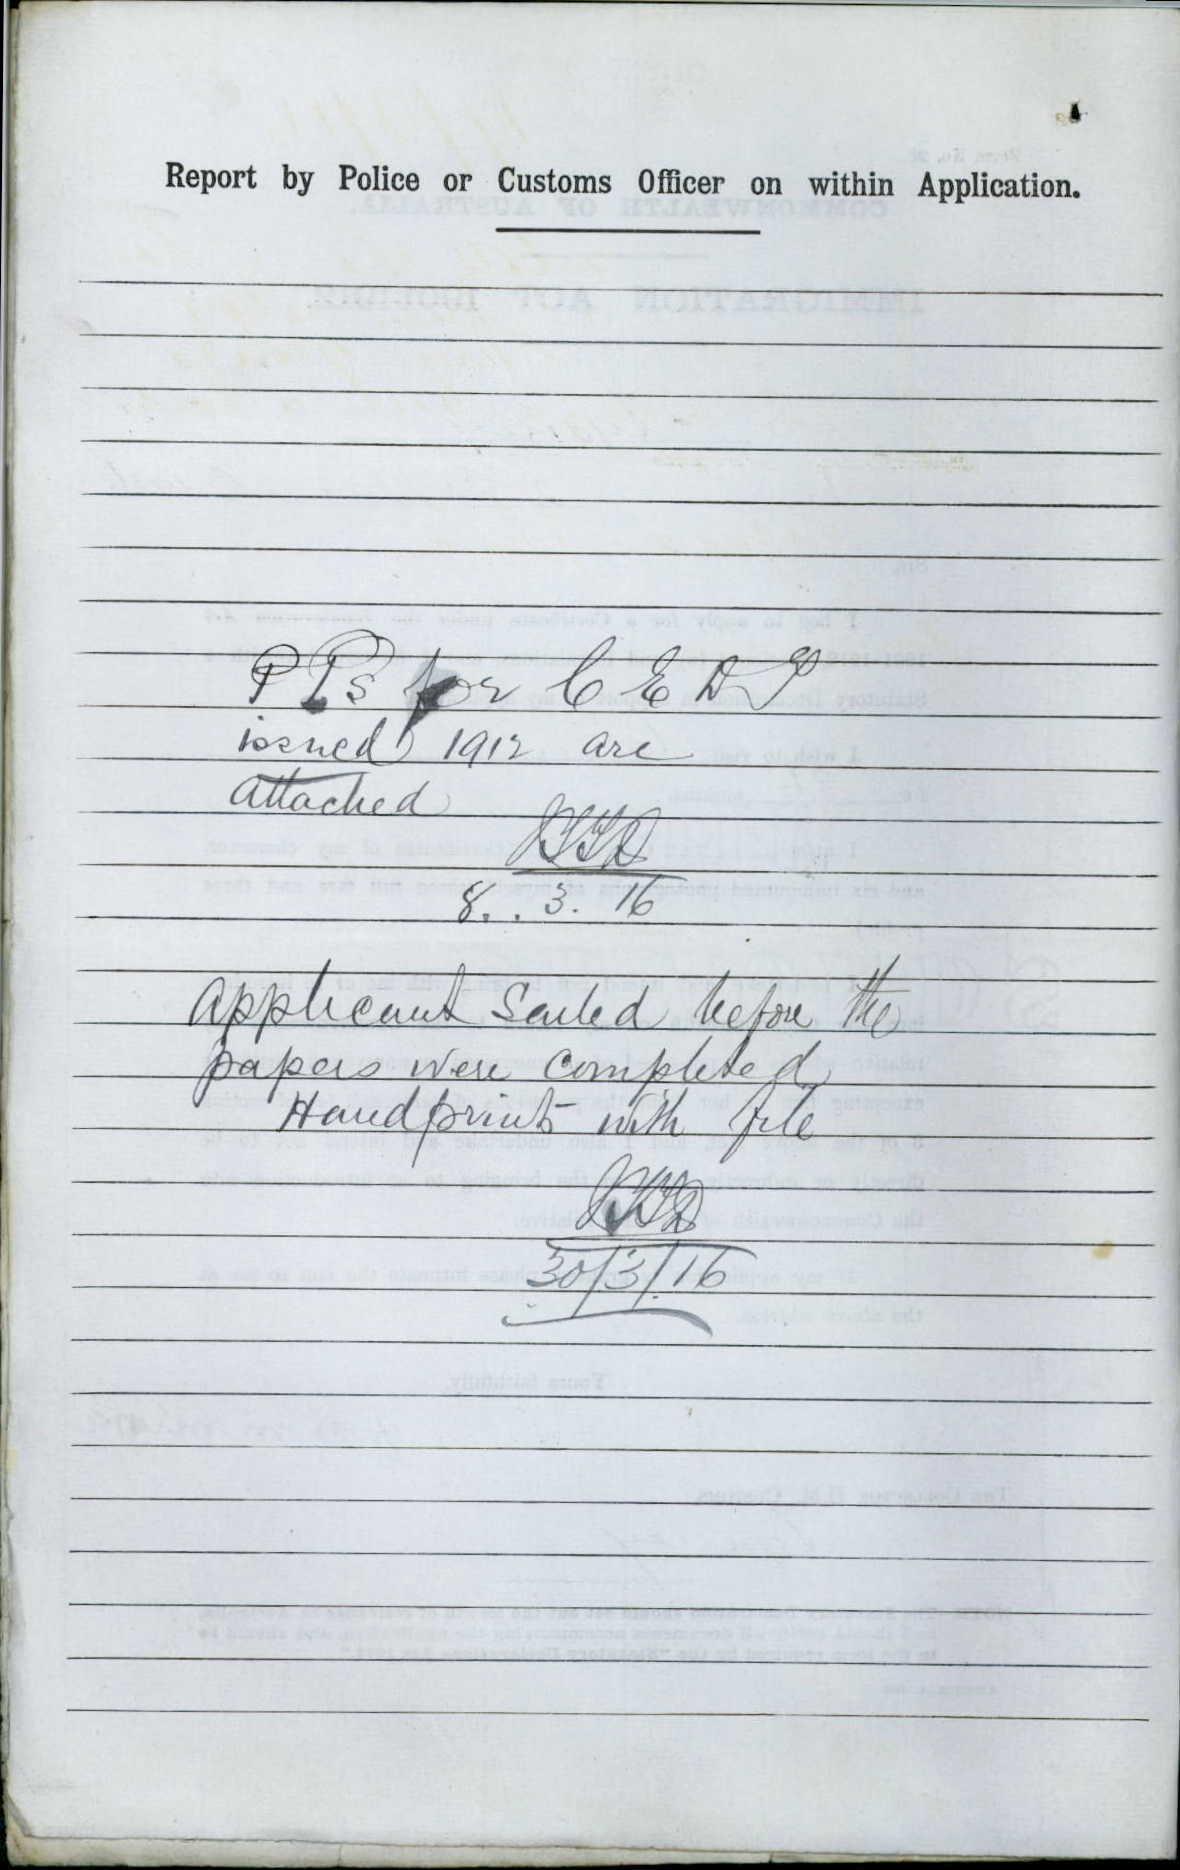 Report by Police or Customs Officer on within Application.
P Ps for C E D T
issued 1912 are
attached
8. . 3. 16
Applicant Sailed before the
papers were completed
Handprints with file
30/3/16